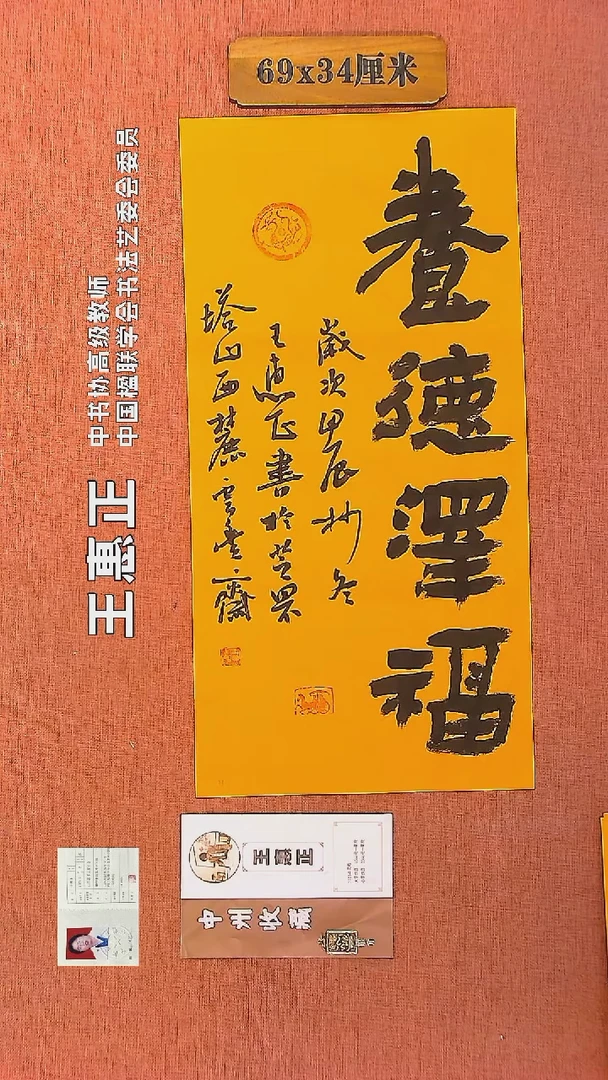 69x34厘米
養德澤福
歲次甲辰杪冬
王惠正書於芝罘
塔山西麓雲齋
王惠正
中书协高级教师
中国楹联学会书法艺委会委员
王惠正
中州收藏